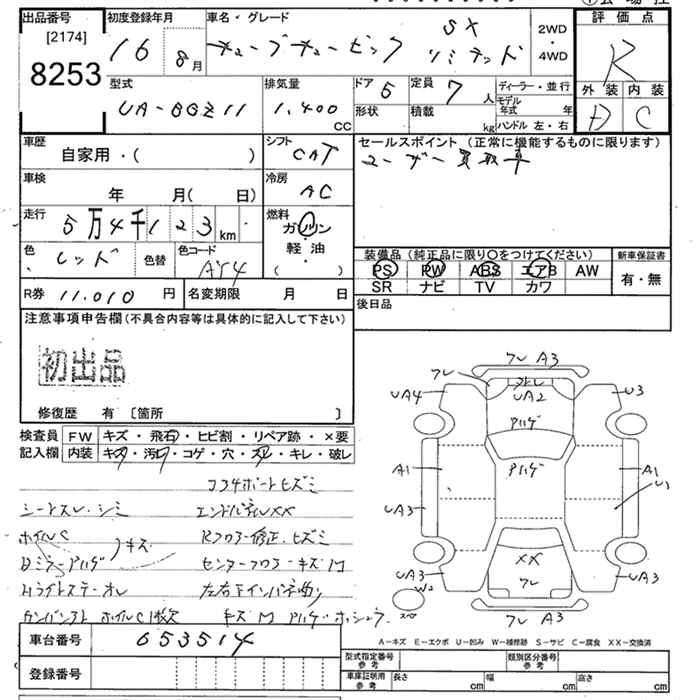 出品番号 初度登録年月 車名・グレード 評価点
[2174]
8253
16 8月 キューブキュービック SX リミテッド 2WD・4WD R
型式 排気量 ドア 5 定員 7人 ディーラー・並行 外装 内装
UA-BGZ11 1,400CC 形状 積載 kg モデル年式 年 ハンドル 左・右 D C
車歴 シフト セールスポイント (正常に機能するものに限ります)
自家用・( ) CAT ユーザー買取車
車検 年 月( 日) 冷房 AC
走行 5万4千123km 燃料 ガソリン 軽・油 ( )
色 レッド 色替 色コード AY4
装備品(純正品に限り○をつけてください) 新車保証書
PS PW ABS エアB AW 有・無
SR ナビ TV カワ
R券 11,010円 名変期限 月 日 後日品
注意事項申告欄(不具合内容等は具体的に記入して下さい)
初出品
修復歴 有 〔箇所 〕
検査員記入欄 FW キズ・飛石・ヒビ割・リペア跡・×要
内装 キズ・汚れ・コゲ・穴・スレ・キレ・破レ
コアサポートヒズミ
シートスレ・シミ エンドパネルXX
ホイルC キズ Rフロアー修正、ヒズミ
Dミラーアハゲ センターフロアーキズM
左右下インパネ曲り
キズM
フレ A3
フレ UA4 UA2 U3
アハゲ
アハゲ
A1 A1 U1
UA3
XX
UA3 W2 フレ UA3
フレ A3
A-キズ E-エクボ U-凹み W-補修跡 S-サビ C-腐食 XX-交換済
車台番号 653514 型式指定番号 参考 類別区分番号 参考
登録番号 車庫証明用 参考 長さ cm 幅 cm 高さ cm